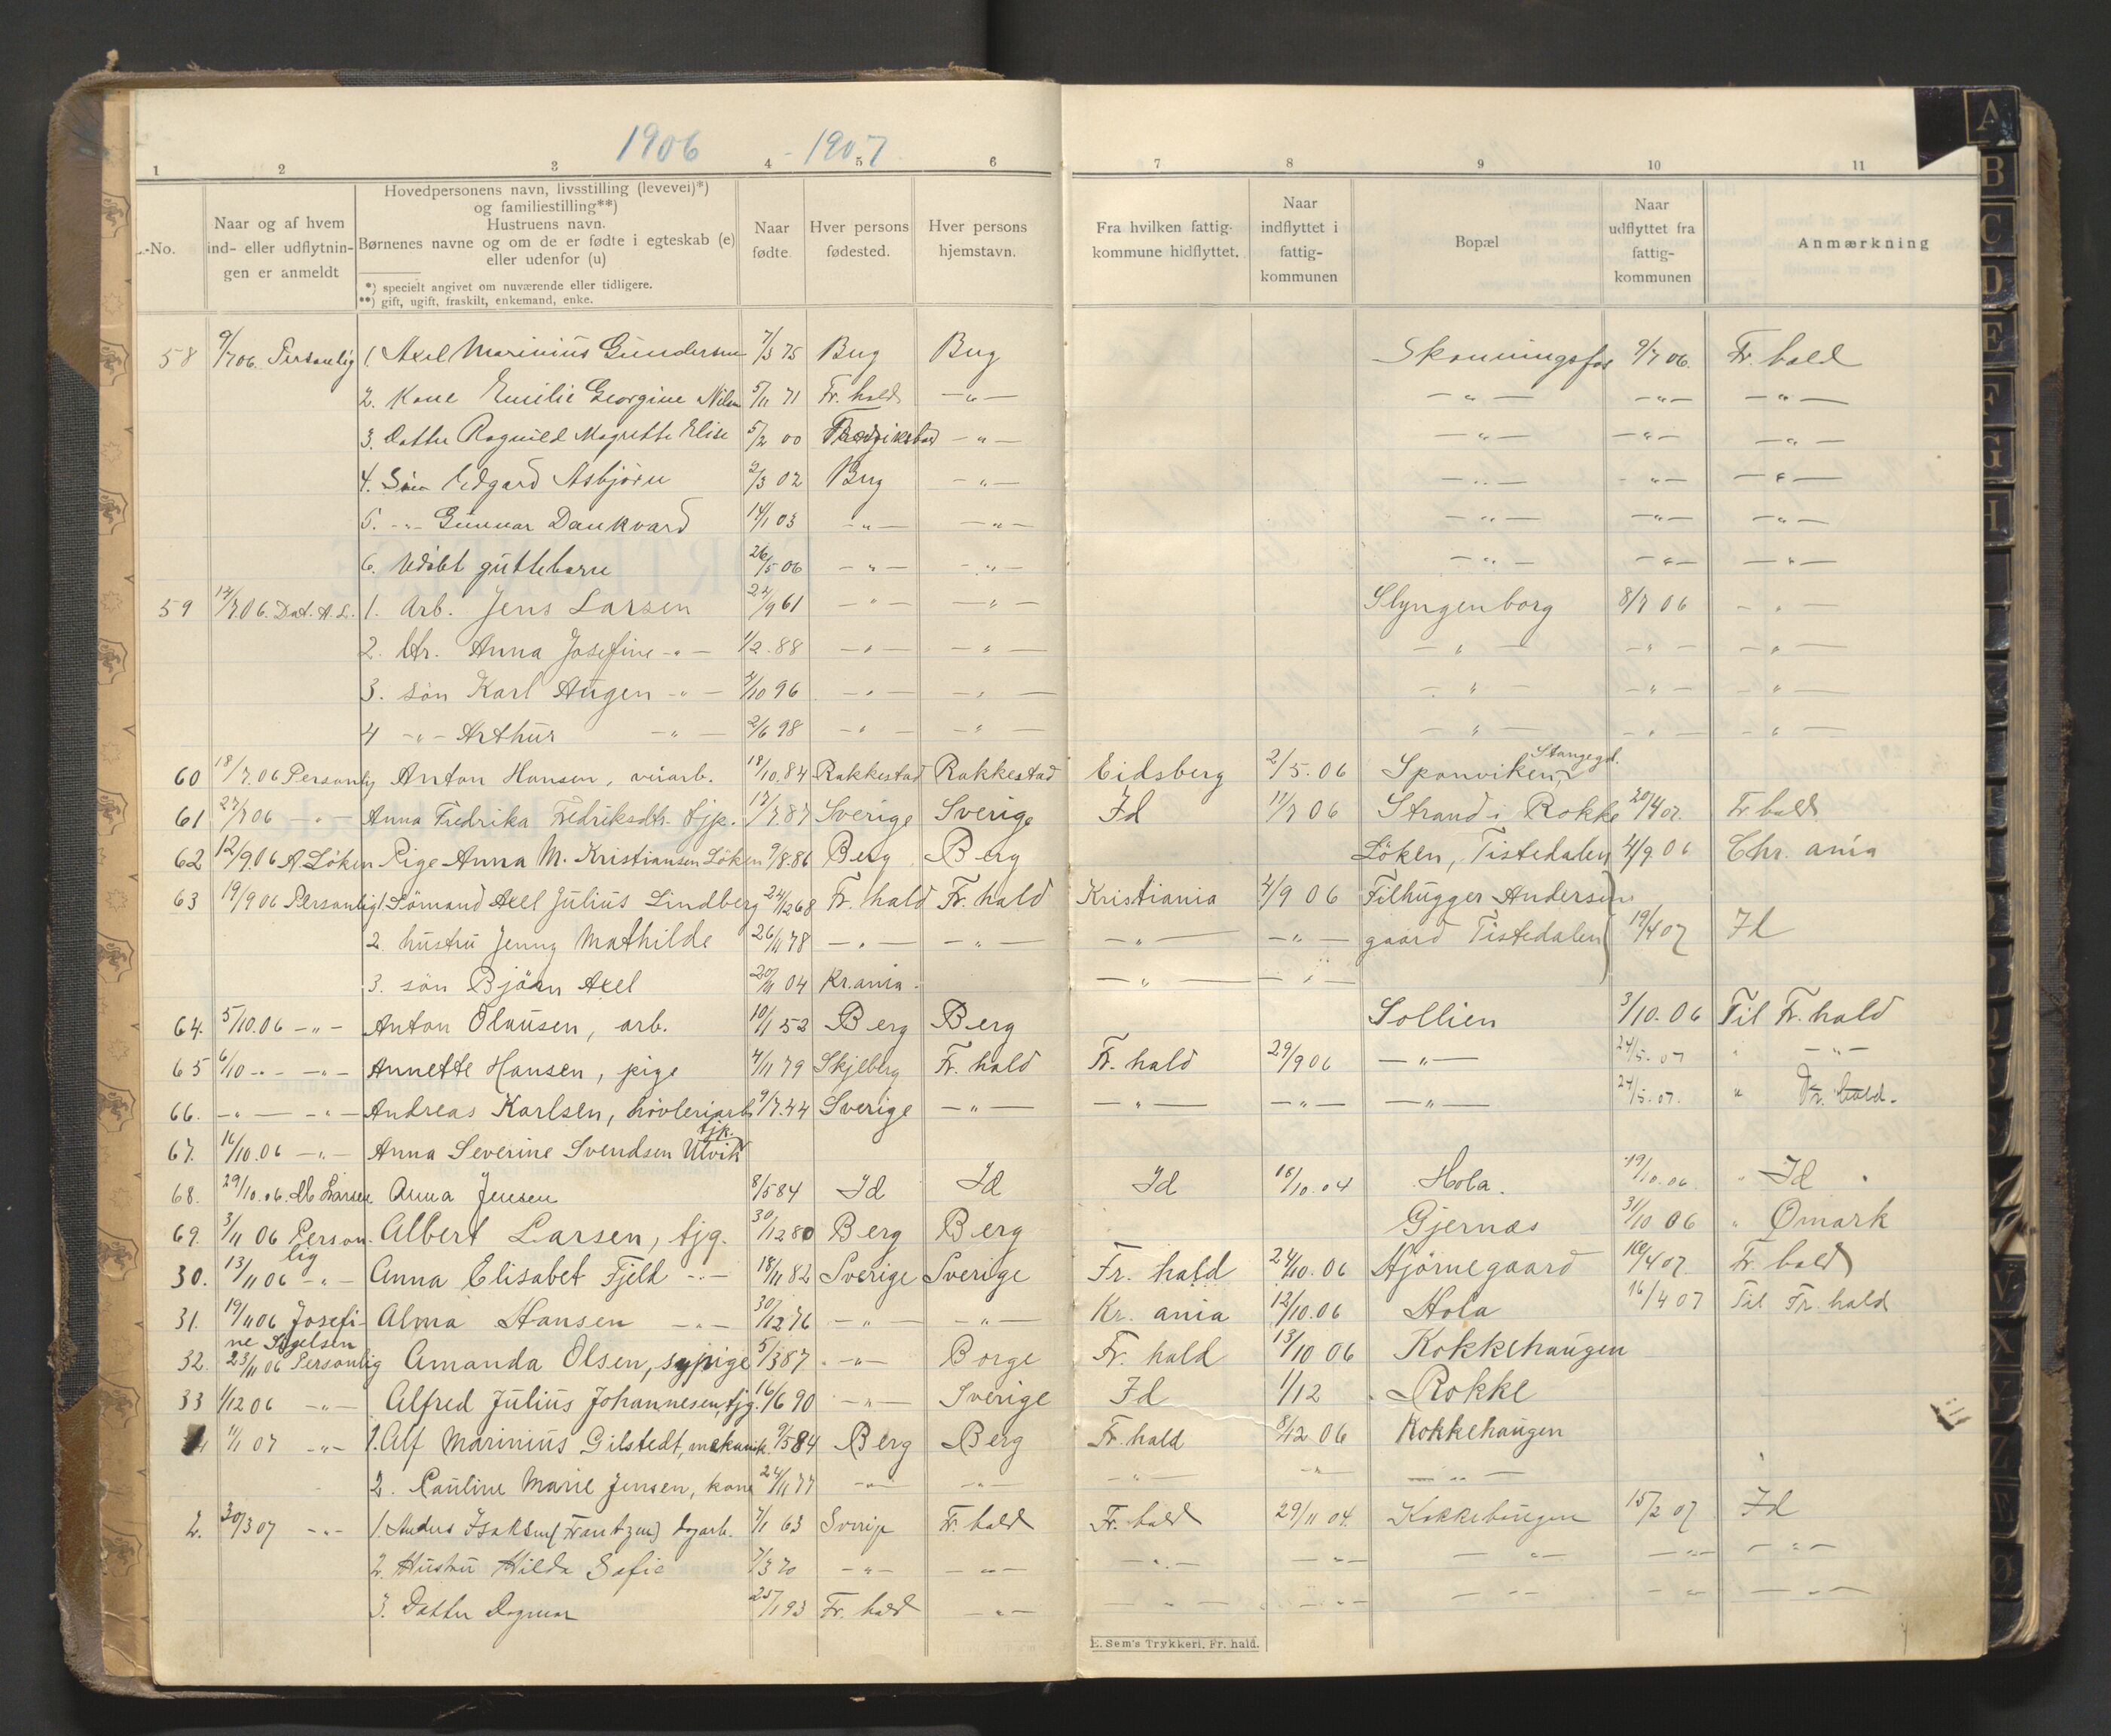 1906 - 1907
1 2 3 4 5 6 7 8 9 10 11
L.-No.
Naar og af hvem ind- eller udflytnin- gen er anmeldt
Hovedpersonens navn, livsstilling (levevei)*)
og familiestilling**)
Hustruens navn.
Børnenes navne og om de er fødte i egteskab (e)
eller udenfor (u)
*) specielt angivet om nuværende eller tidligere.
**) gift, ugift, fraskilt, enkemand, enke.
Naar fødte
Hver persons fødested.
Hver persons hjemstavn.
Fra hvilken fattig- kommune hidflyttet.
Naar indflyttet i fattig- kommunen
Bopæl
Naar udflyttet fra fattig- kommunen
Anmærkning
58 9/7 06. Personlig 1. Axel Marinius Gundersen 7/3 75 Berg Berg Skonningsfos 9/7 06. Fr. hald
2. Kone Emilie Georgine Nilsen 5/11 71 Fr. hald -"- -"- -"- -"-
3. Datter Ragnild Magrethe Elise 5/2 00 Fredrikstad -"- -"- -"- -"-
4. Søn Edgard Asbjørn 2/3 02 Berg -"- -"- -"- -"-
5. -"- Gunnar Dankvard 14/1 03 -"- -"- -"- -"- -"-
6. Udøbt guttebarn 26/5 06 -"- -"- -"- -"- -"-
59 14/7 06. Dat. A. L. 1. Arb. Jens Larsen 24/9 61 -"- -"- Slyngenborg 8/7 06 -"-
2. Dtr. Anna Josefine -"- 1/2 . 88 -"- -"- -"- -"- -"-
3. søn Karl Augen -"- 4/10 96 -"- -"- -"- -"- -"-
4 -"- Arthur -"- 2/6 98 -"- -"- -"- -"- -"-
60 18/7. 06 Personlig Anton Hansen, veiarb. 18/10. 84 Rakkestad Rakkestad Eidsberg 2/5. 06 Sponviken, Stangegd.
61 27/7 06 -"- Anna Fredrika Fredriksdtr. tjp. 17/7. 87 Sverige Sverige Id 17/7 06 Strand i Rokke 20/4 07. Fr hald
62 12/9. 06 A Löken Pige Anna M. Kristiansen Löken 9/8. 86 Berg Berg Löken, Tistedalen 4/9 06 Chr. ania
63 19/9 06 Personlig 1. Sömand Axel Julius Lindberg 24/12 68 Fr. hald Fr. hald Kristiania 4/9 06 Filhugger Andersen
2. hustru Jenny Mathilde 26/11 78 -"- -"- -"- -"- gaard Tistedalen 19/4 07 Id
3. søn Björn Axel 20/11 04 Kr.ania. -"- -"-
64. 5/10. 06 -"- Anton Olausen, arb. 10/1 52 Berg Berg Sollien 3/10. 06 Til Fr. hald
65 6/10 -"- -"- Annette Hansen, pige 4/11 79 Skjeberg Fr. hald Fr. hald 29/9 06 -"- 24/5. 07 " -"-
66. -"- -"- Andreas Karlsen, hövleriarb 9/7. 44 Sverige -"- -"- -"- -"- 24/5. 07. " Fr. hald.
67. 16/10. 06 -"- Anna Severine Svendsen Ulvik tjp.
68. 29/10. 06. Larsen Anna Jensen 8/5 84 Id Id Id 18/10. 04 Hola. 19/10. 06 " Id
69. 3/11 06 Person- lig Albert Larsen, tjg. 30/12 80 Berg Berg Gjernæs 31/10 06 " Ømark
30. 13/11 06 -"- Anna Elisabet Fjeld -"- 18/11 82 Sverige Sverige Fr. hald 24/10. 06 Hjørnegaard 16/4 07 Fr. hald
31. 19/11 06 Josefi- ne Alma Hansen -"- 30/12 76 -"- -"- Kr. ania 12/10. 06 Hola 16/4 07 Til Fr. hald
32. 23/11 06 Personlig Amanda Olsen, sypige 5/3 87 -"- Borge Fr. hald 13/10 06 Kokkehaugen
33 1/12 06 -"- Alfred Julius Johannesen, tjg. 16/6 90 -"- Sverige Id 1/12 Rokke
11/1 07 -"- 1. Alf Marinius Gilstedt, mekanik. 9/5 84 Berg Berg Fr. hald 8/12 06 Kokkehaugen
2. Pauline Marie Jensen, kone 24/11 77 -"- -"- -"- -"- -"-
2. 30/3 07 -"- 1. Anders Isaksen (Frantzen) dagarb. 7/1 63 Sverige Fr. hald Fr. hald 29/11 04. Kokkehaugen 15/2 07 Id
2. Hustru Hilda Sofie 7/3 70 -"- -"- -"- -"- -"- -"- -"-
3. Datter Dagmar 25/1 93 Fr. hald -"- -"- -"- -"- -"- -"-
E. Sem's Trykkeri, Fr. hald.
A
B
C
D
E
F
G
H
V
X
Y
Z
Æ
Ø